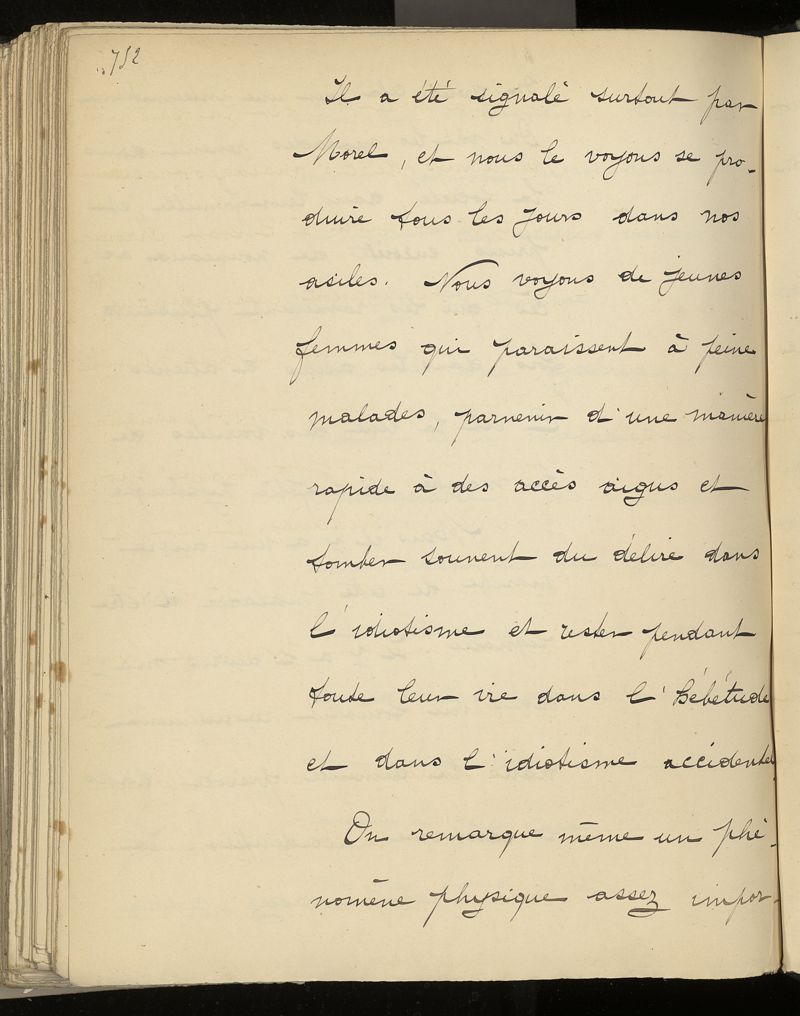 752
Il a été signalé surtout par
Morel, et nous le voyons se pro-
duire tous les jours dans nos
asiles. Nous voyons de jeunes
femmes qui paraissent à peine
malades, parvenir d'une manière
rapide à des accès aigus et
tomber souvent du délire dans
l'idiotisme et rester pendant
toute leur vie dans l'hébétude
et dans l'idiotisme accidentel.
On remarque même un phé-
nomène physique assez impor-